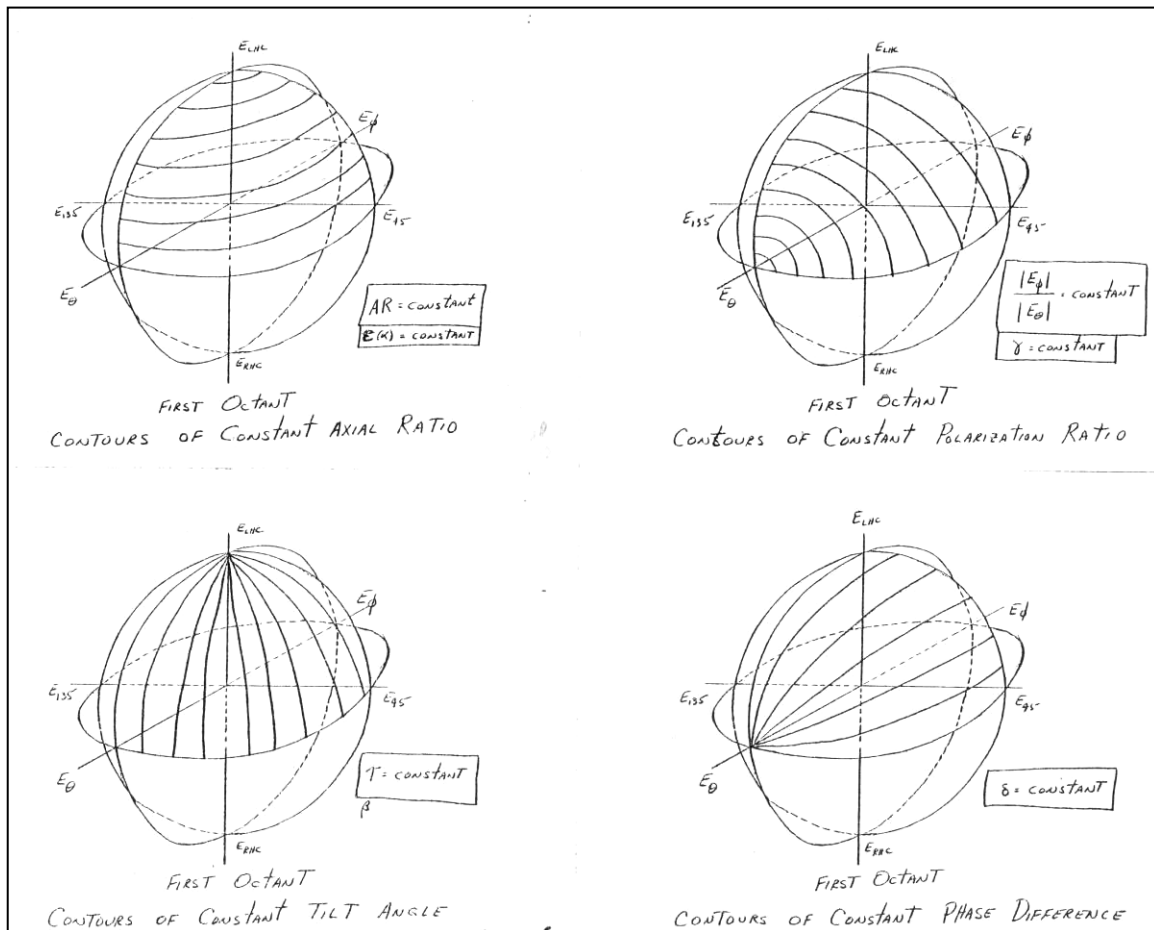 E_LHC
E_φ
E_135
E_45
E_θ
AR = CONSTANT
ε(α) = CONSTANT
E_RHC
FIRST OCTANT
CONTOURS OF CONSTANT AXIAL RATIO
E_LHC
E_φ
E_135
E_45
E_θ
|E_φ|
|E_θ| = CONSTANT
γ = CONSTANT
E_RHC
FIRST OCTANT
CONTOURS OF CONSTANT POLARIZATION RATIO
E_LHC
E_φ
E_135
E_45
E_θ
τ = CONSTANT
β
E_RHC
FIRST OCTANT
CONTOURS OF CONSTANT TILT ANGLE
E_LHC
E_φ
E_135
E_45
E_θ
δ = CONSTANT
E_RHC
FIRST OCTANT
CONTOURS OF CONSTANT PHASE DIFFERENCE